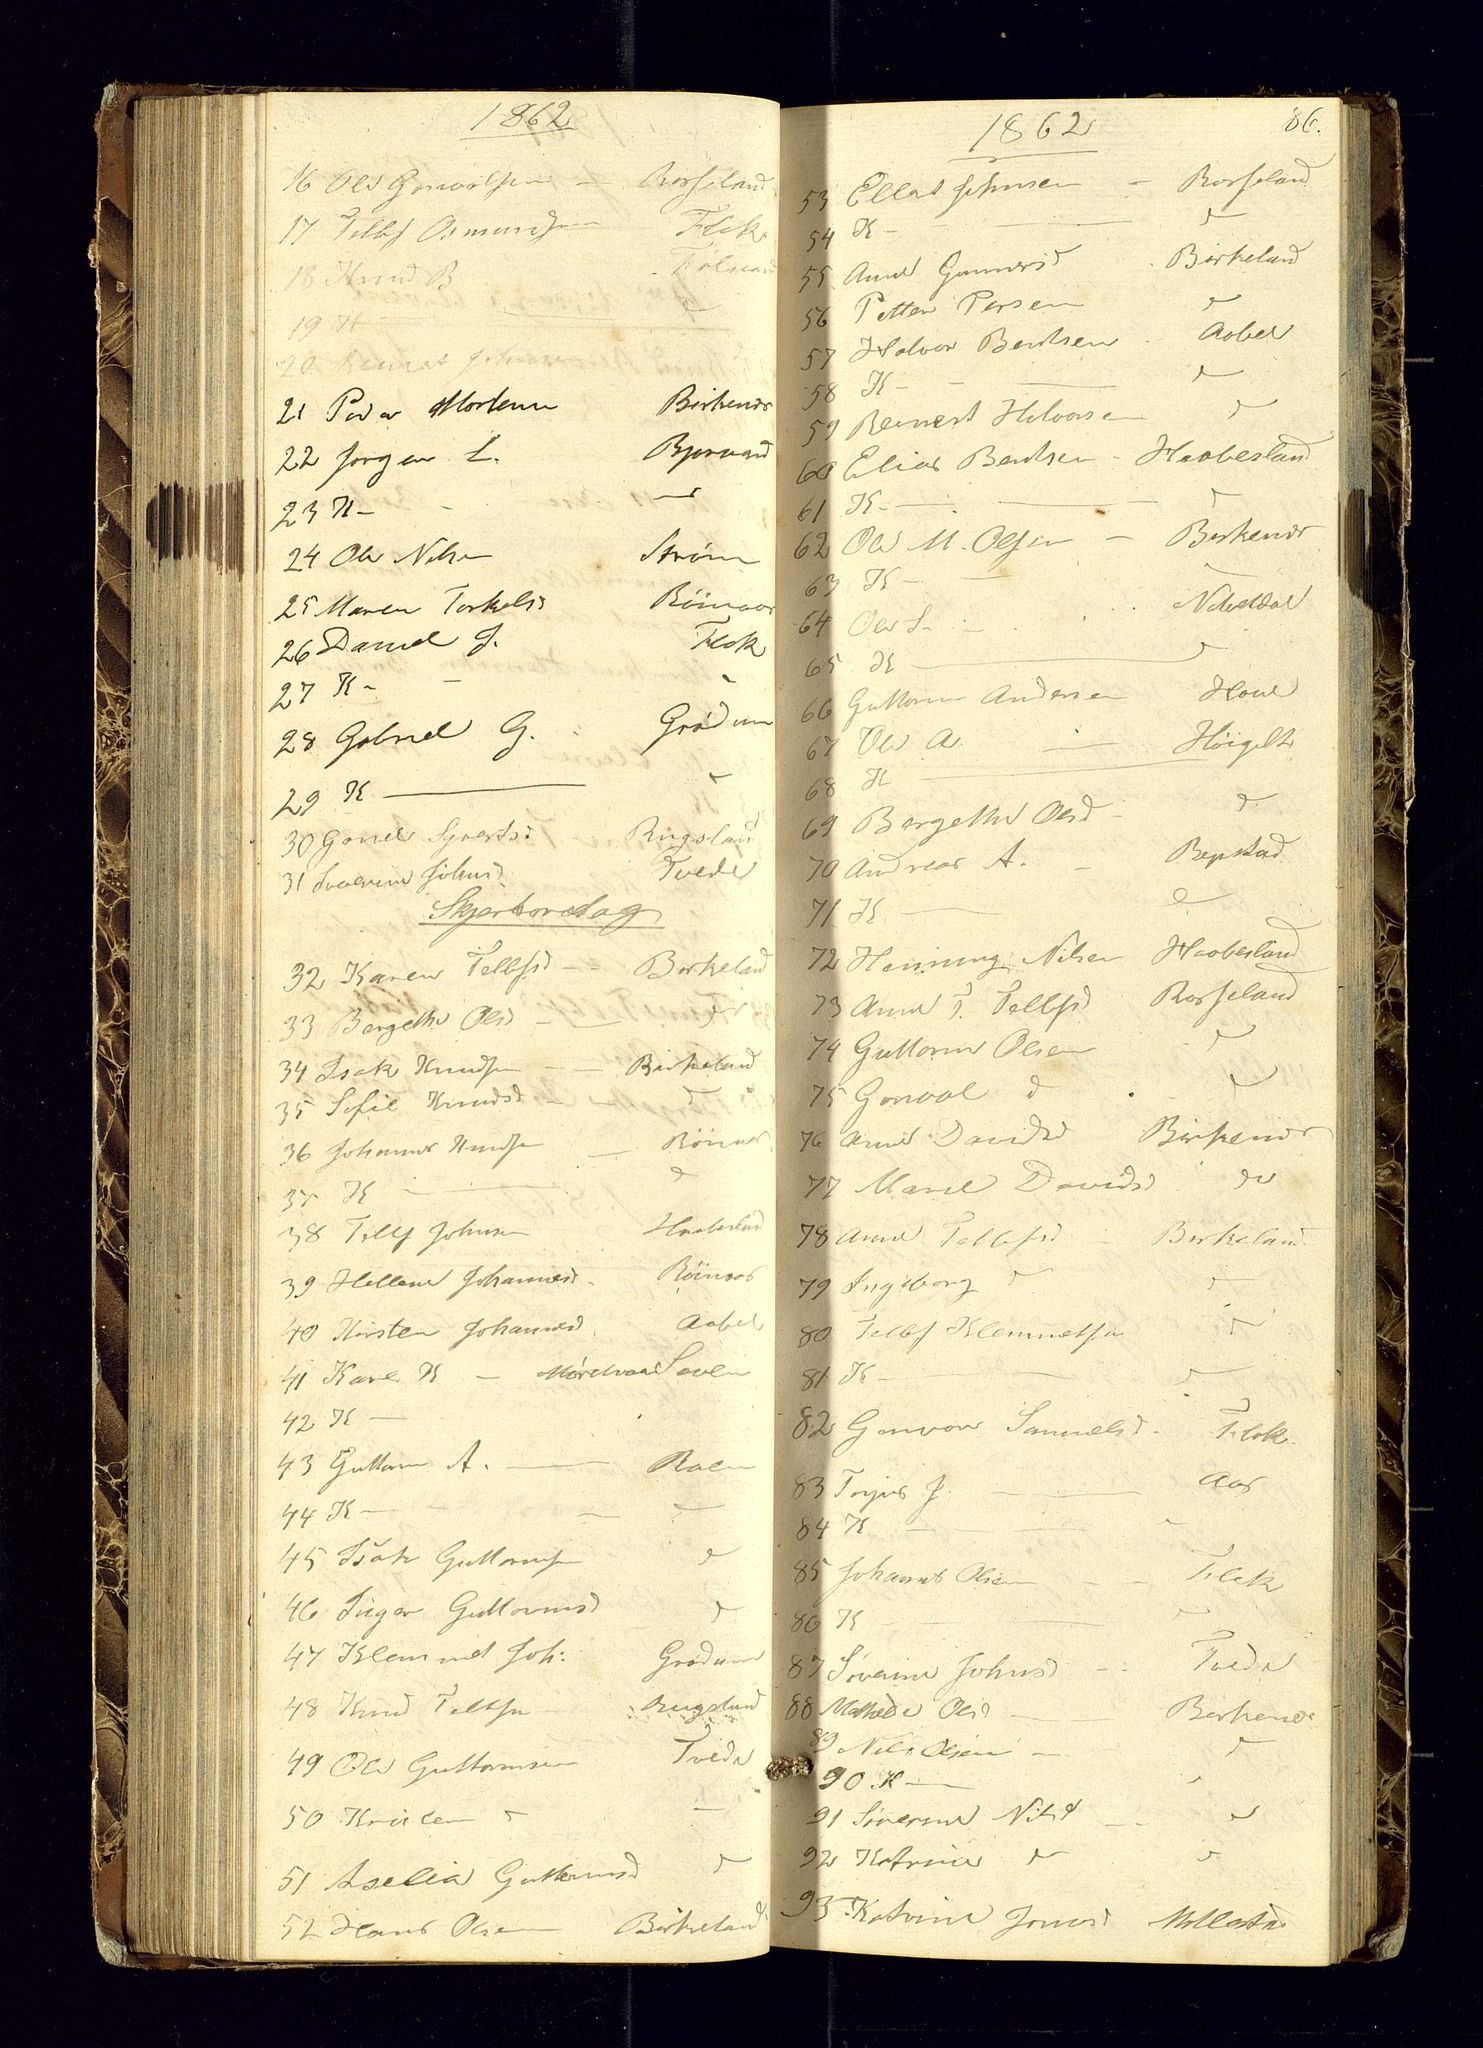 1862
16 Ole Gonvolsen — Rosseland
17 Tellef Osmundsen Flak
18 Knud B
19 K — "
20
21 Peder Mortensen Birkenes
22 Jørgen L. Bjorvand
23 K - - —
24 Ole Nilsen Strøm
25 Maren Torkelsd Röinaas
26 Daniel J. Flak
27 K - - "
28 Gabriel G. Grødum
29 K — "
30 Gonel Syvertsd Rugsland
31 Severine Johnsd Tvede
Skjertorsdag
32 Karen Tellefsd — Birkeland
33 Bergethe Olsd — "
34 Isak Knudsen — Birkeland
35 Sofie Knudsd — "
36 Johannes Knudsen — Röinaas
37 K — "
38 Tellef Johnsen Haabesland
39 Hellene Johannesd. Röinaas
40 Kirsten Johannesd. Aabel
41 Karl K — Mørchvaad Saven
42 K —
43 Guttorm A. — Raen
44 K — — —
45 Isak Guttormsen "
46 Inger Guttormsd "
47 Klemmet Joh: Grødum
48 Knud Tellefsen Rugsland
49 Ole Guttormsen Tvede
50 " —
51 Aselia Guttormsd "
52 Hans Olsen Birkeland
1862 86.
53 Ellert Johnsen — Rosseland
54 K — "
55 Anne Gunnersd Birkeland
56 Petter Persen "
57 Halvor Bentsen Aabel
58 K — "
59 Reinert Halvorsen "
60 Elias Bentsen — Haabesland
61 K — "
62 Ole M. Olsen — Birkenes
63 K — —
64 Ole S. —
65 K — "
66 Guttorm Andersen Hove
67 Ole A — Høigilt
68 K —
69 Bergethe Olsd — "
70 Andreas A. — Repstad
71 K — "
72 Henning Nilsen Haabesland
73 Anne T. Tellefsd Rosseland
74 Guttorm Olsen "
75 Gonval d "
76 Anne Davidsd Birkenes
77 Maren Davidsd do
78 Anne Tellefsd Birkeland
79 Ingeborg " "
80 Tellef Klemmetsen "
81 K — "
82 Gonvor Samuelsd. Flak.
83 Torjus J. — Aas
84 K — — "
85 Johannes Olsen — — Flak
86 K — "
87 Severine Johnsd — Tvede
88 Mathilde Olsd — Birkenes
89 Nils Olsen — "
90 K — "
91 Severine Nilsd — "
92 Katrine " "
93 Katrine Jonsd Mollestad